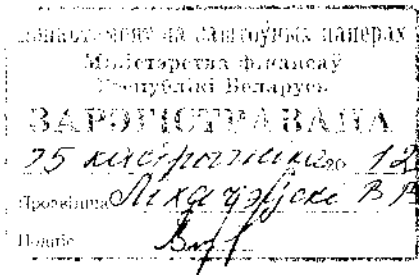 па каштоўных паперах
Міністэрства фінансаў
Рэспублікі Беларусь
ЗАРЭГІСТРАВАНА
25 кастрычніка 20 12
Прозвішча
Подпіс